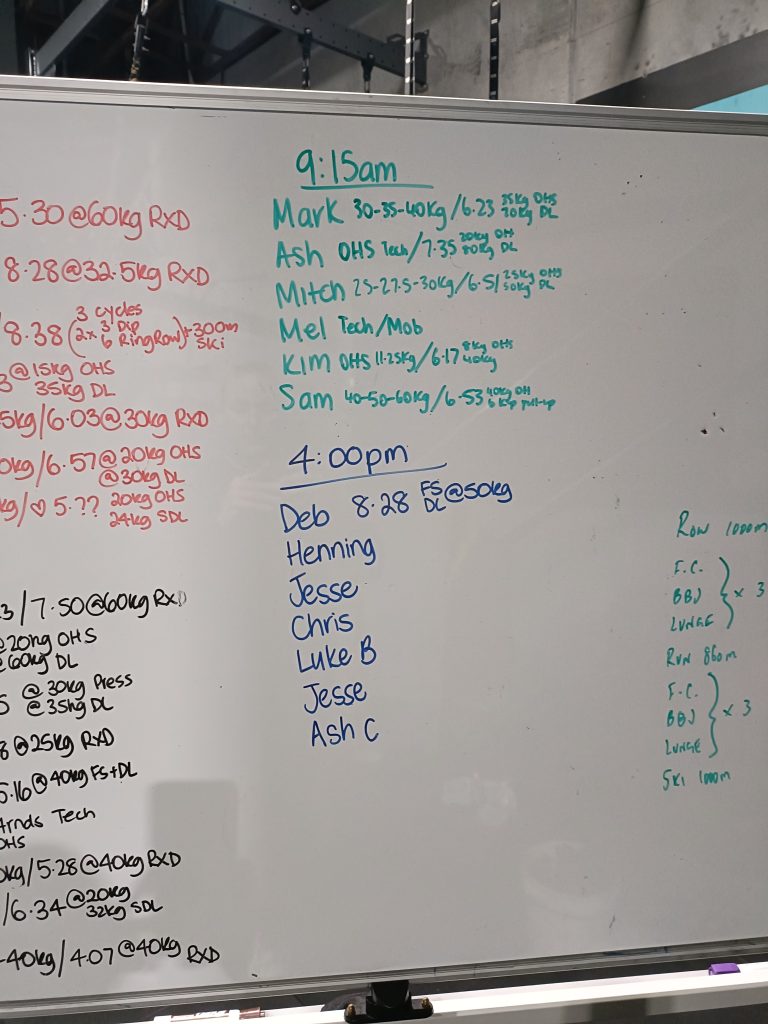 5.30@60kg RXD
8.28@32.5kg RXD
8.38 (3 cycles 2x 3 Dip 6 RingRow) +300m Ski
3 @15kg OHS
35kg DL
5kg/6.03@30kg RXD
0kg/6.57@20kg OHS
@30kg DL
kg/♡ 5.?? 20kg OHS
24kg SDL
3/7.50@60kg RXD
@20kg OHS
@60kg DL
5 @30kg Press
@35kg DL
8@25kg RXD
5.16@40kg FS+DL
Arnds Tech
OHS
0kg/5.28@40kg RXD
/6.34@20kg
32kg SDL
-40kg/4.07@40kg RXD
9:15am
Mark 30-35-40kg/6.23 35kg OHS
70kg DL
Ash OHS Tech/7.35 20kg OH
80kg DL
Mitch 25-27.5-30kg/6.51 25kg OHS
50kg DL
Mel Tech/Mob
Kim OHS 11.25kg/6.17 8kg OHS
40kg
Sam 40-50-60kg/6.53 40kg OH
6 kip pull-up
4:00pm
Deb 8.28 FS
DL @50kg
Henning
Jesse
Chris
Luke B
Jesse
Ash C
Row 1000m
F.C.
BBJ
LUNGE
x 3
RUN 860m
F.C.
BBJ
LUNGE
x 3
SKI 1000m